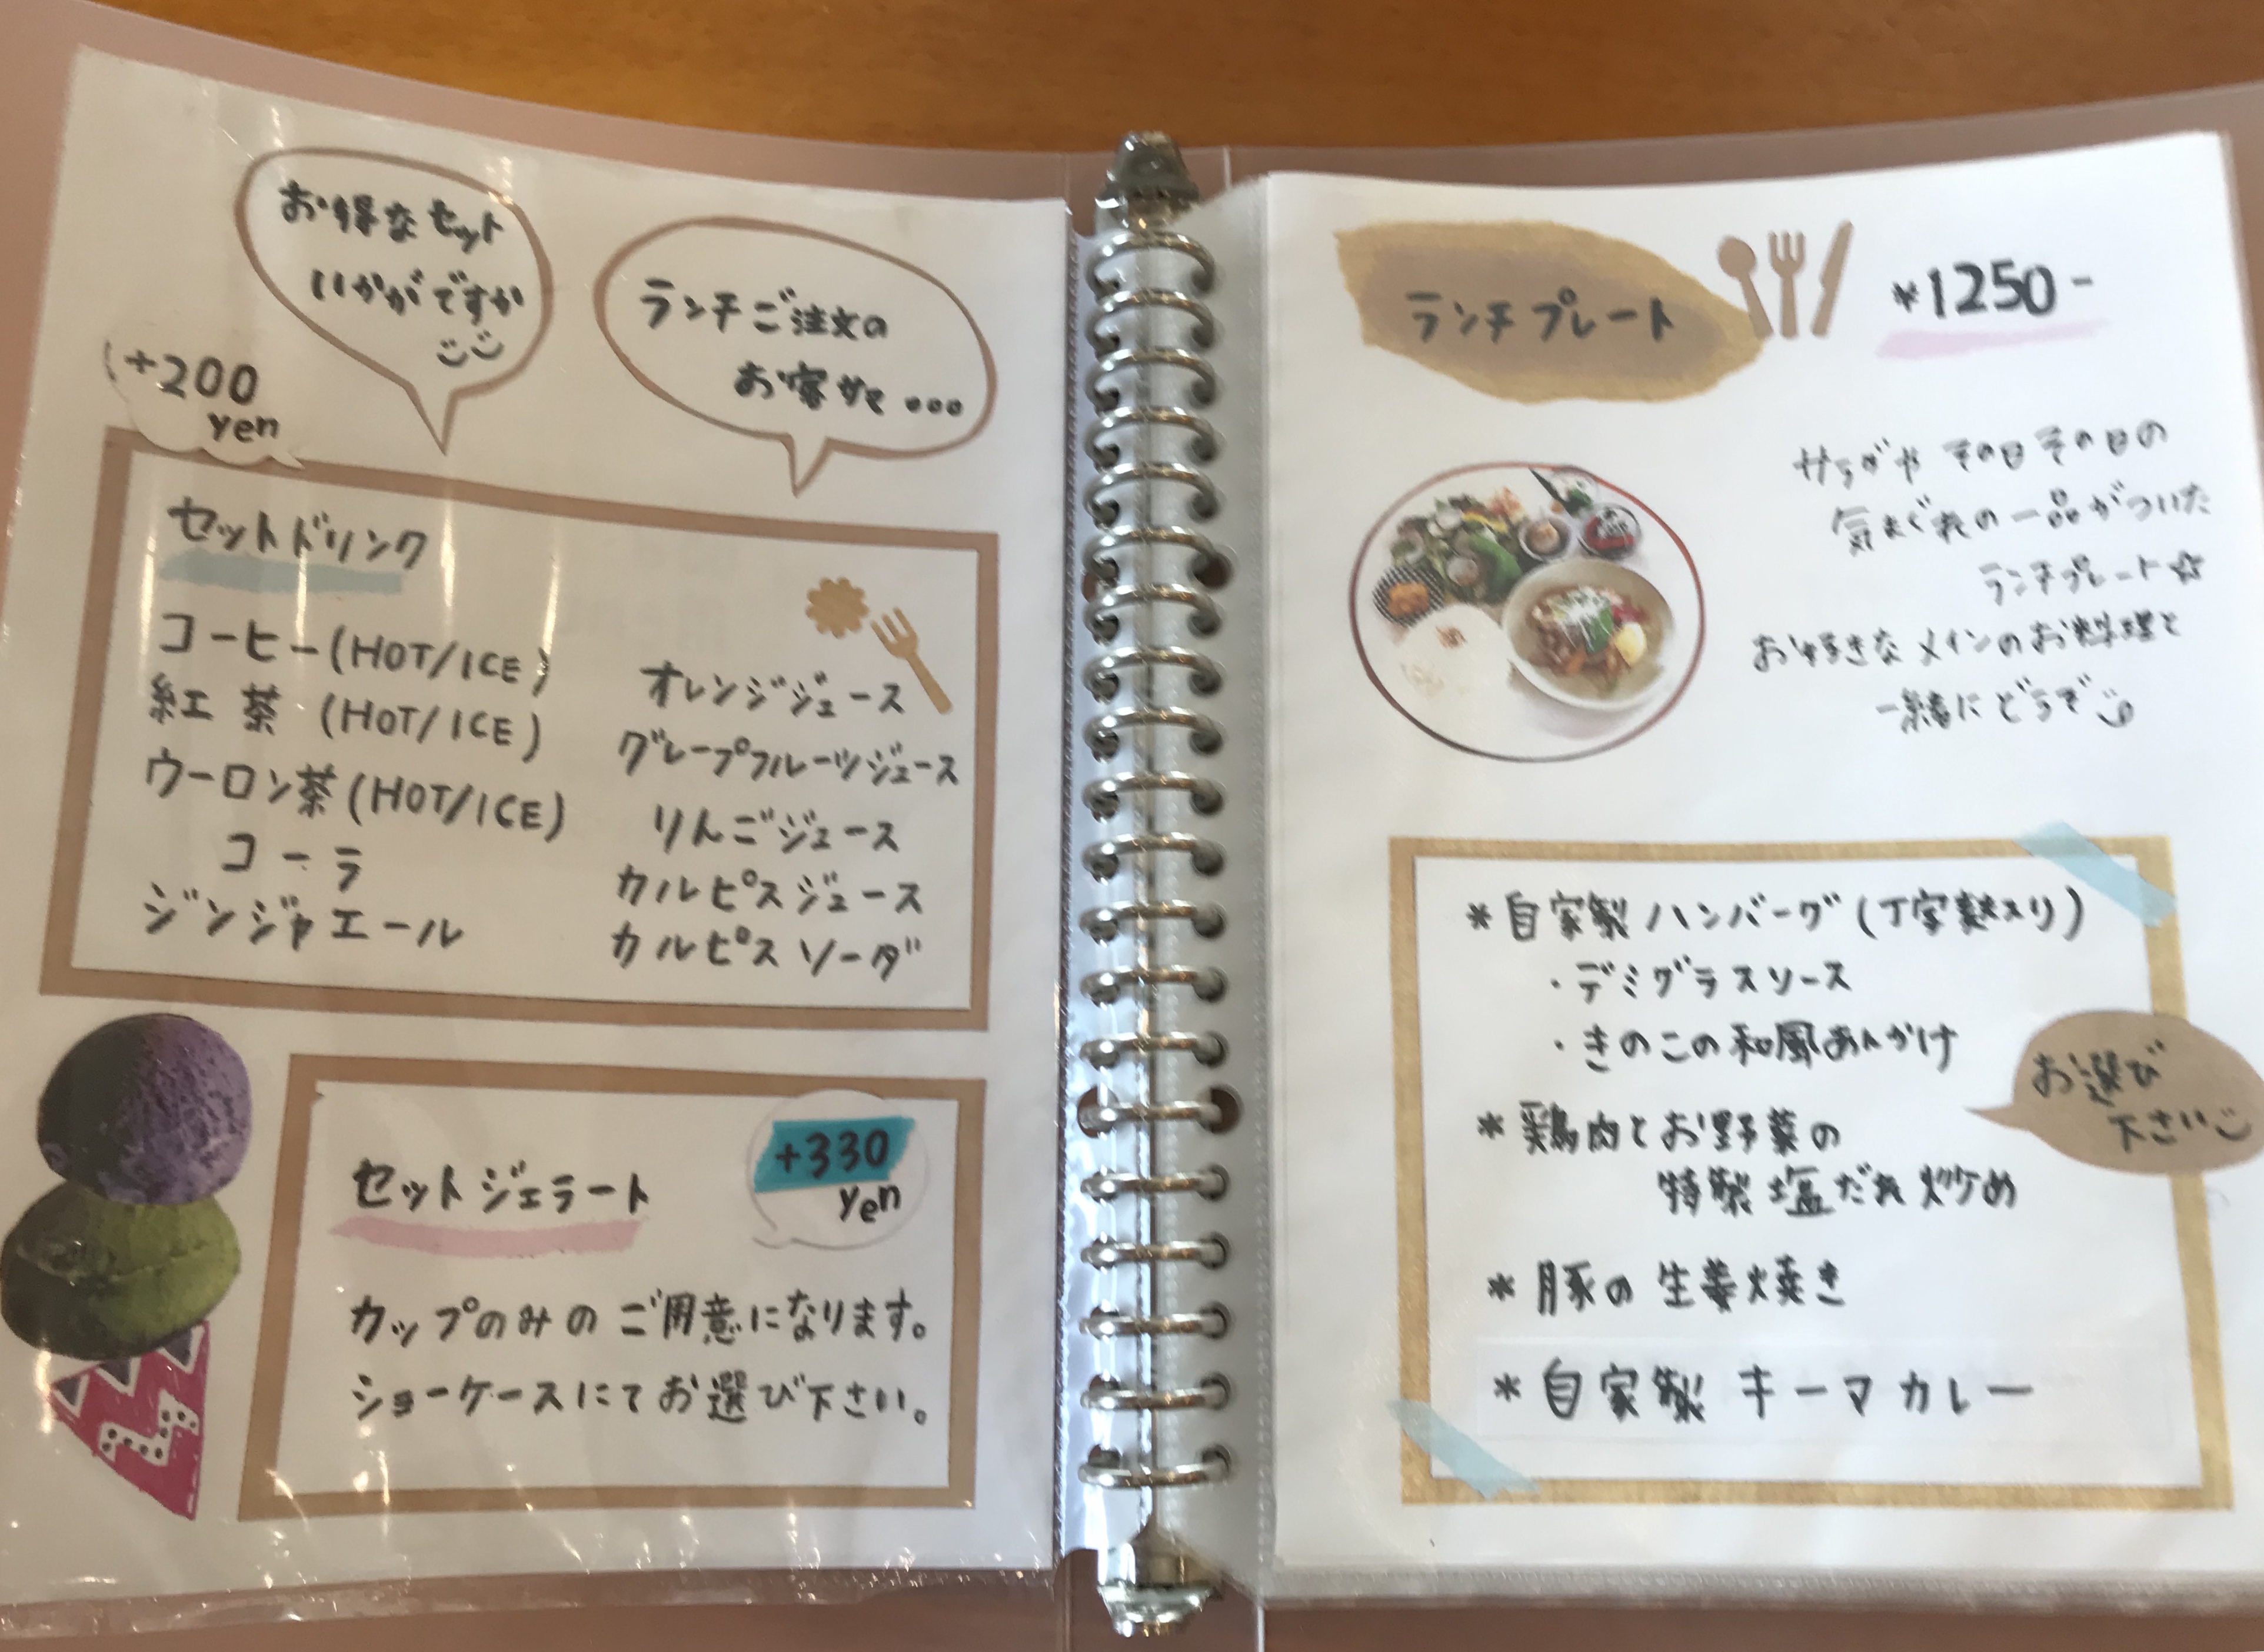 お得なセット
いかがですか
ランチご注文の
お客サマ...
+200
yen
セットドリンク
コーヒー(HOT/ICE)
紅茶 (HOT/ICE)
ウーロン茶(HOT/ICE)
コーラ
ジンジャエール
オレンジジュース
グレープフルーツジュース
りんごジュース
カルピスジュース
カルピスソーダ
セットジェラート
+330
yen
カップのみのご用意になります。
ショーケースにてお選び下さい。
ランチプレート
¥1250-
サラダや その日その日の
気まぐれの一品がついた
ランチプレート☆
お好きなメインのお料理と
一緒にどうぞ
*自家製ハンバーグ(丁字麩入り)
・デミグラスソース
・きのこの和風あんかけ
*鶏肉とお野菜の
特製塩だれ炒め
*豚の生姜焼き
*自家製キーマカレー
お選び
下さい